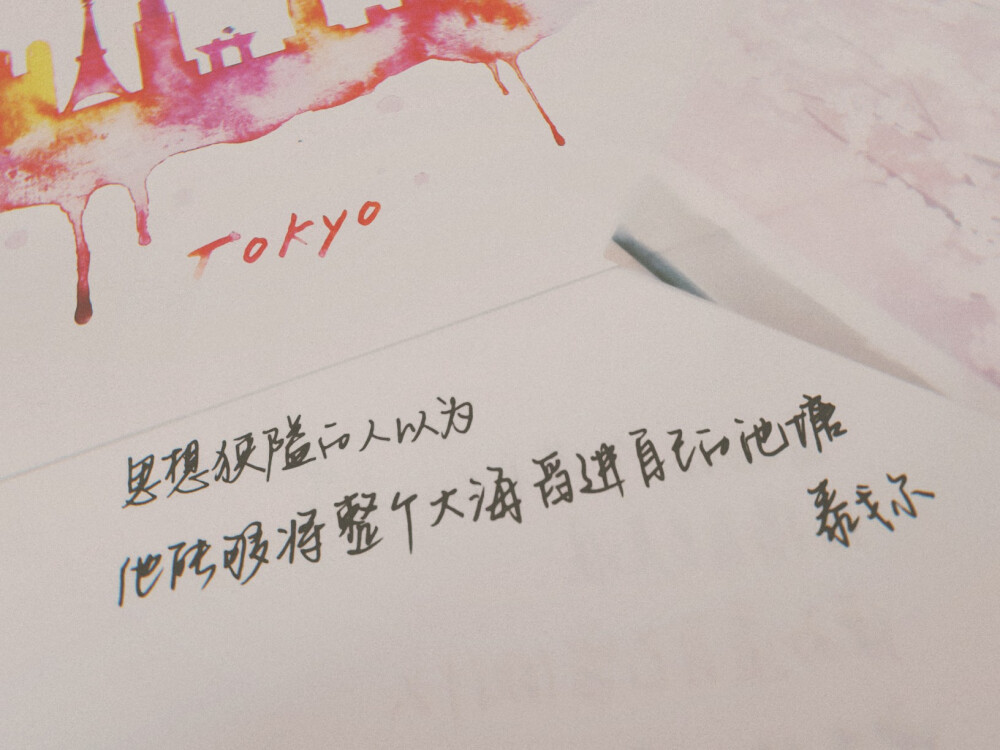 TOKYO
思想狭隘的人以为
他能够将整个大海舀进自己的池塘
泰戈尔